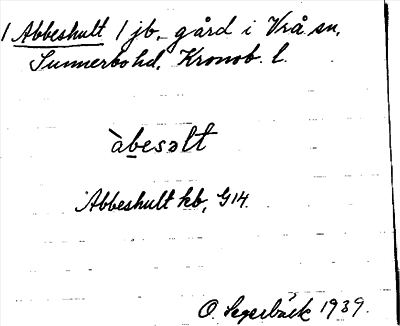 1 Abbeshult 1 jb. gård i Vrå sn,
Sunnerbo hd, Kronob. l.
àbesəlt
Abbeshult kb, G14.
O. Segerbäck 1939.